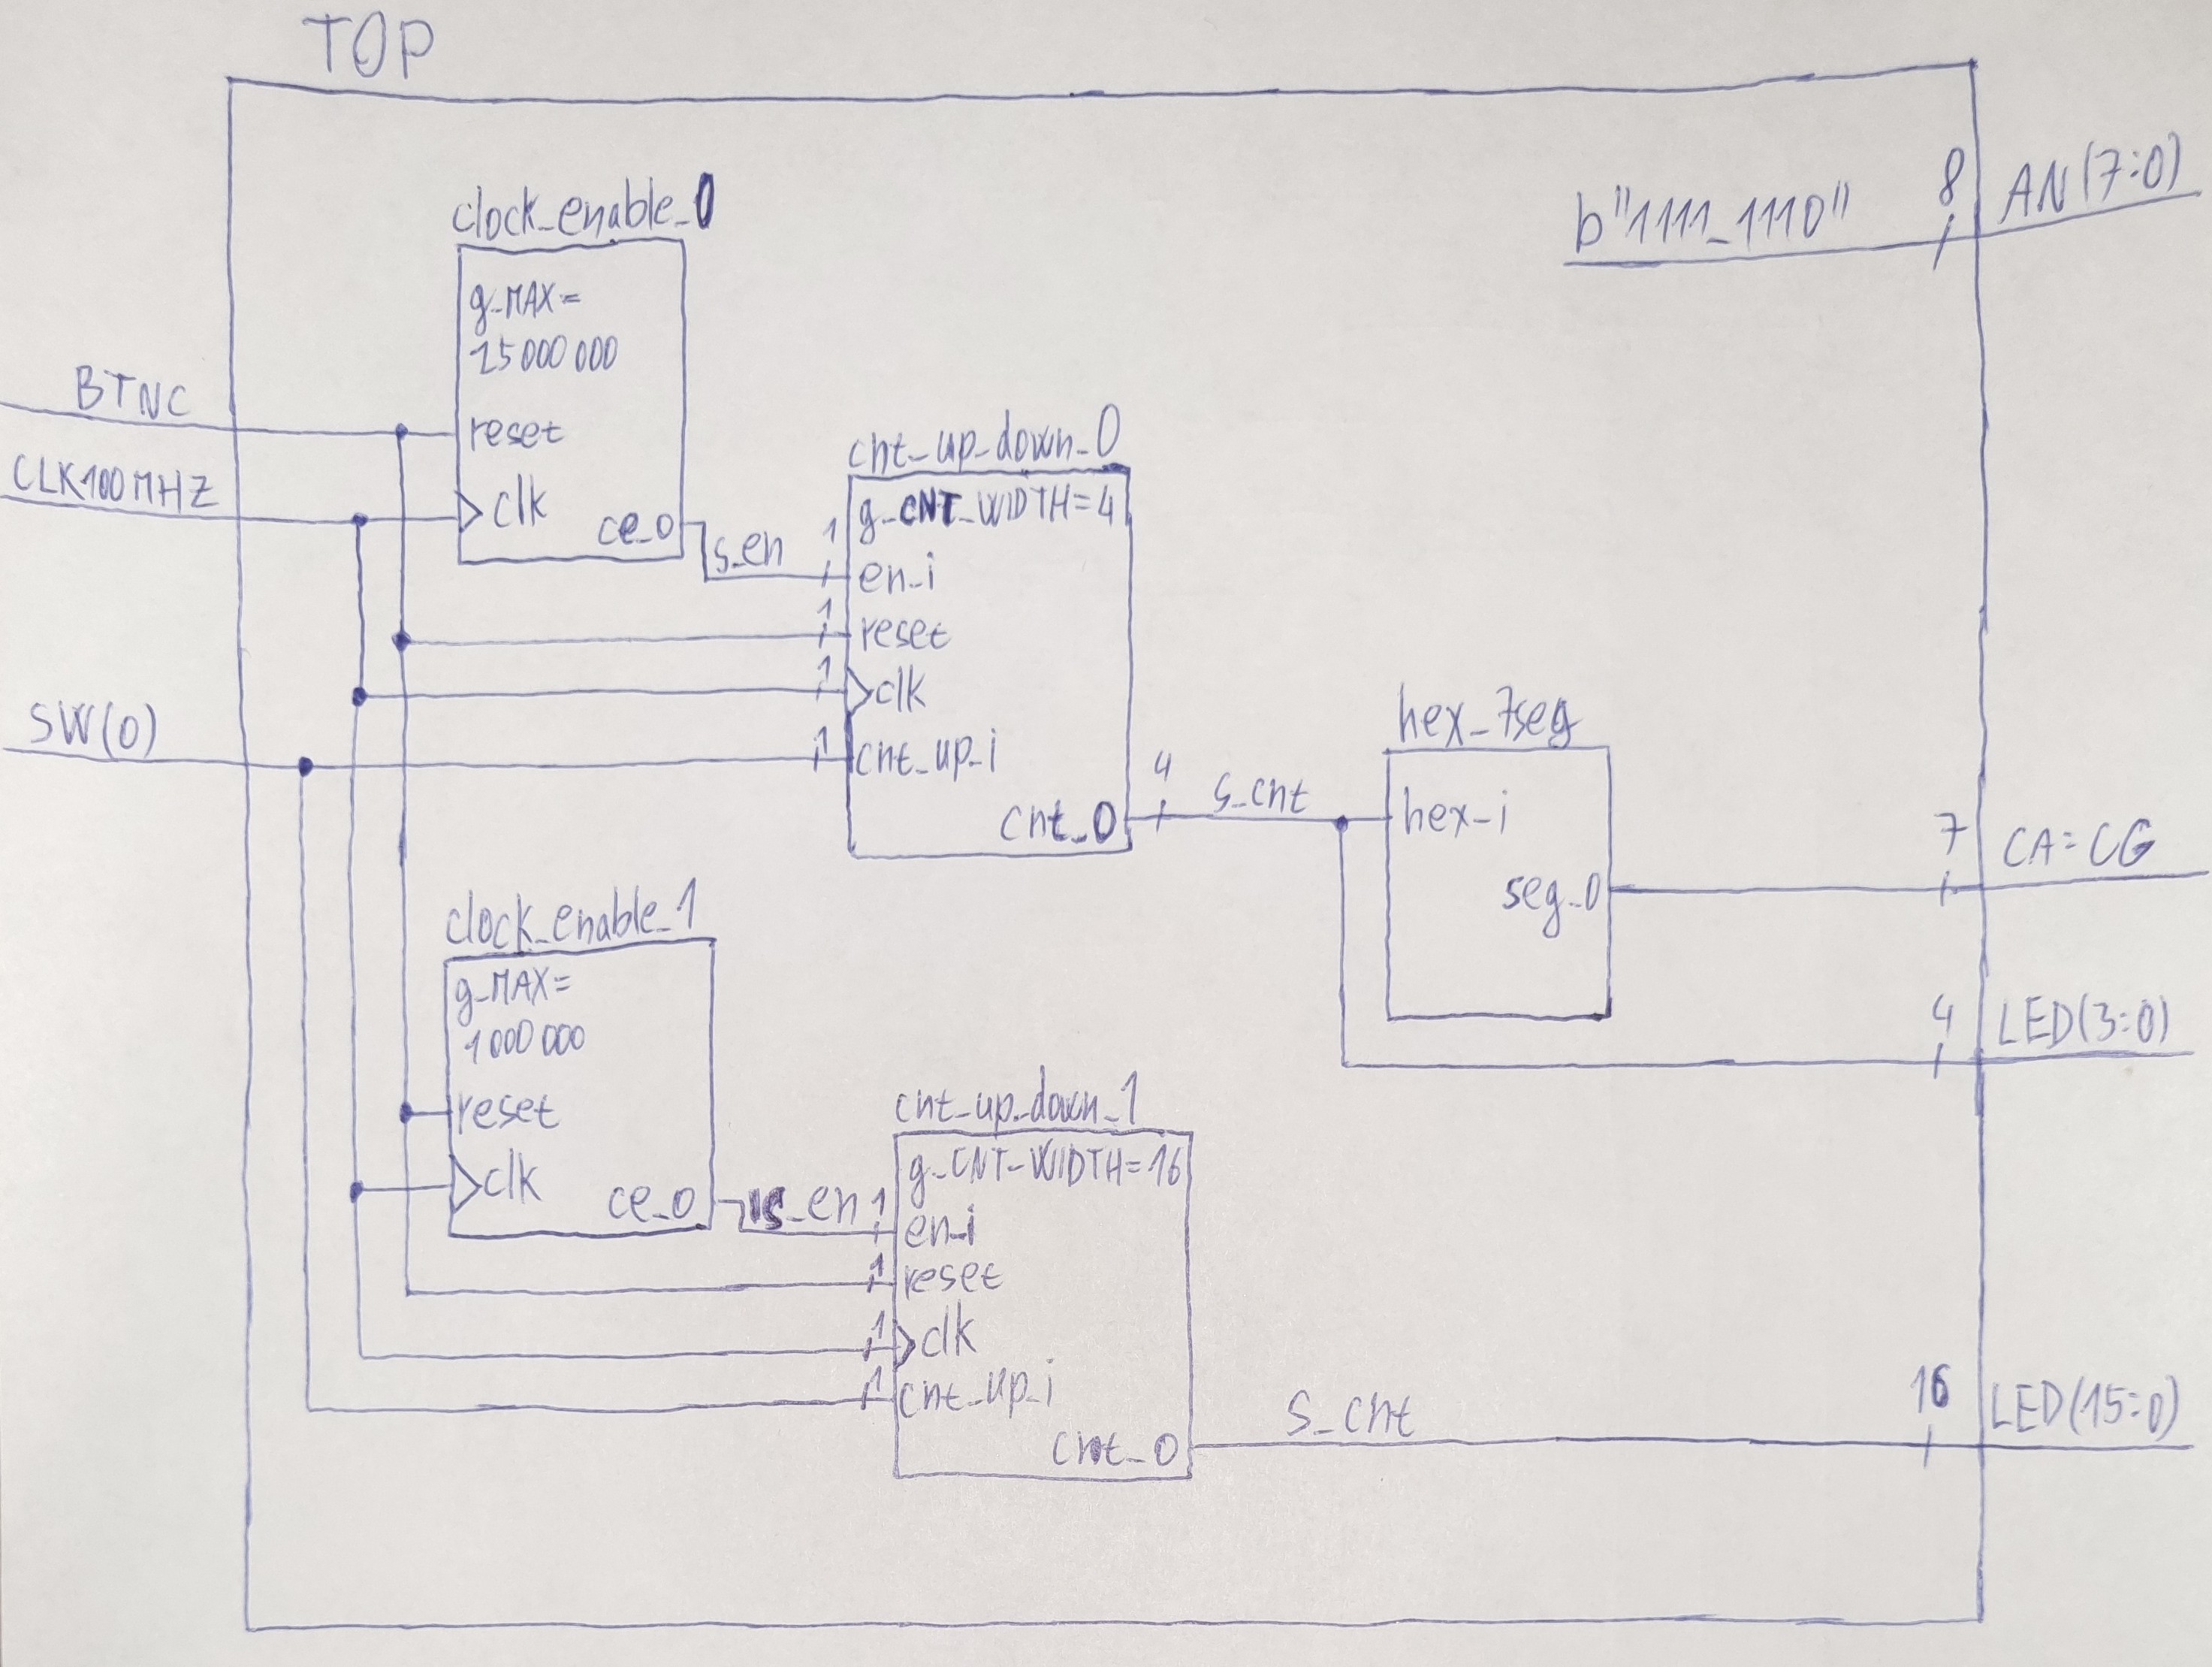 TOP
b"1111_1110"
8
AN(7:0)
clock_enable_0
g_MAX=
25000 000
reset
clk
ce_0
BTNC
CLK100MHZ
SW(0)
s_en
cnt_up_down_0
g_CNT_WIDTH=4
1
en_i
1
reset
1
clk
1
cnt_up_i
cnt_0
4
s_cnt
hex_7seg
hex_i
seg_0
7
CA:CG
4
LED(3:0)
clock_enable_1
g_MAX=
1000 000
reset
clk
ce_0
s_en
cnt_up_down_1
g_CNT_WIDTH=16
1
en_i
1
reset
1
clk
1
cnt_up_i
cnt_0
s_cnt
16
LED(15:0)